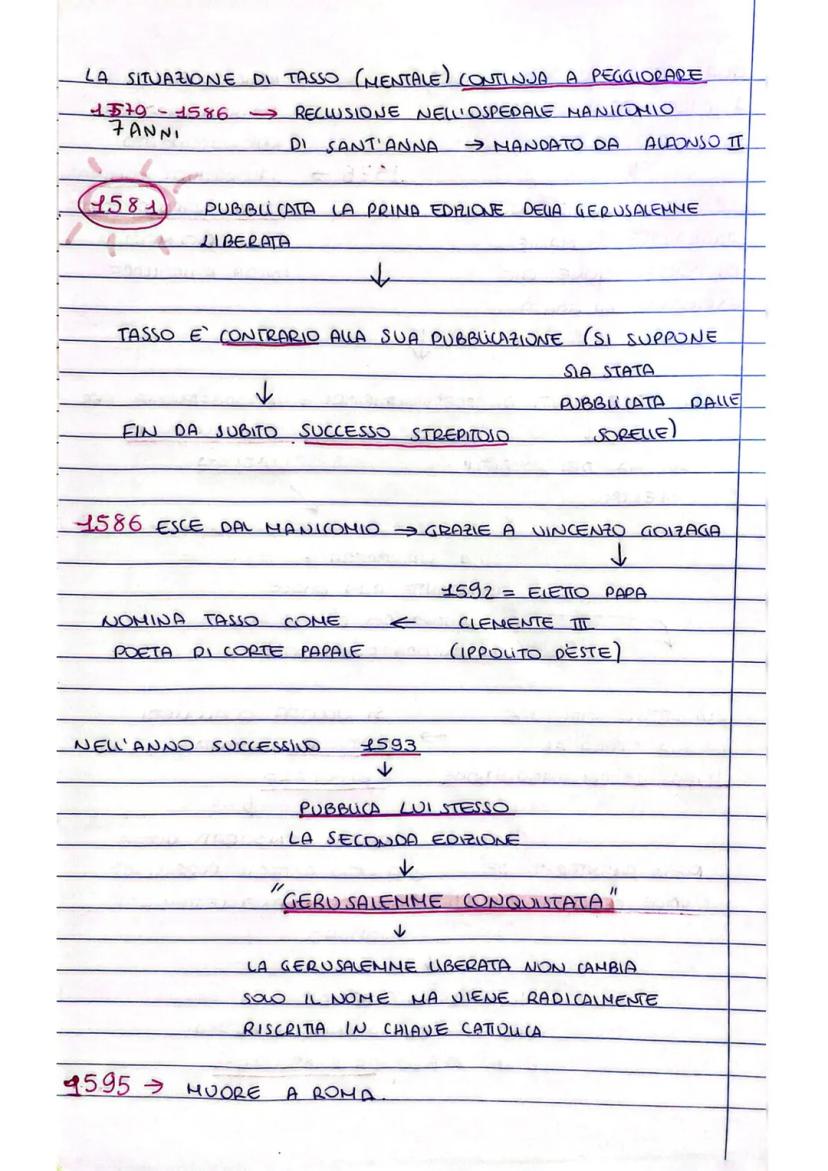 LA SITUAZIONE DI TASSO (MENTALE) CONTINUA A PEGGIORARE
1579 - 1586 → RECLUSIONE NELL'OSPEDALE MANICOMIO
7 ANNI
DI SANT'ANNA → MANDATO DA ALFONSO II
1581 PUBBLICATA LA PRIMA EDIZIONE DELLA GERUSALEMME
LIBERATA
↓
TASSO E' CONTRARIO ALLA SUA PUBBLICAZIONE (SI SUPPONE
SIA STATA
↓ PUBBLICATA DALLE
FIN DA SUBITO SUCCESSO STREPITOSO SORELLE)
1586 ESCE DAL MANICOMIO → GRAZIE A VINCENZO GOIZAGA
↓
1592 = ELETTO PAPA
NOMINA TASSO COME ← CLEMENTE III
POETA DI CORTE PAPALE (IPPOLITO D'ESTE)
NELL'ANNO SUCCESSIVO 1593
↓
PUBBLICA LUI STESSO
LA SECONDA EDIZIONE
↓
"GERUSALEMME CONQUISTATA"
↓
LA GERUSALEMME LIBERATA NON CAMBIA
SOLO IL NOME MA VIENE RADICALMENTE
RISCRITTA IN CHIAVE CATTOLICA
1595 → MUORE A ROMA.